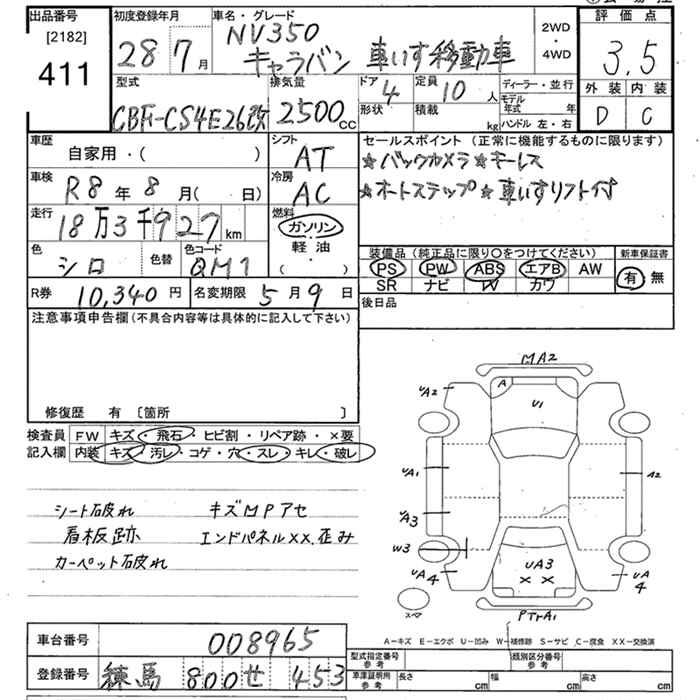 出品番号 初度登録年月 車名・グレード 評価点
[2182]
411
28年7月
NV350
キャラバン 車いす移動車
2WD
・
4WD
3.5
外装 内装
D C
型式 CBF-CS4E26改
排気量 2500cc
ドア 4 形状
定員 10人 積載 kg
ディーラー・並行
モデル年式 年
ハンドル 左・右
車歴 自家用・( )
シフト AT
セールスポイント(正常に機能するものに限ります)
☆バックカメラ☆キーレス
☆オートステップ☆車いすリフト付
車検 R8年8月( 日)
冷房 AC
走行 18万3千927km
燃料 ガソリン・軽油・( )
色 シロ 色替 色コード QM1
装備品(純正品に限り〇をつけてください) 新車保証書
PS PW ABS エアB AW 有 無
SR ナビ TV カワ
R券 10,340円 名変期限 5月9日
後日品
注意事項申告欄(不具合内容等は具体的に記入して下さい)
修復歴 有 〔箇所 〕
検査員 FW キズ・飛石・ヒビ割・リペア跡・×要
記入欄 内装 キズ・汚レ・コゲ・穴・スレ・キレ・破レ
シート破れ キズMPアセ
看板跡 エンドパネルXX.歪み
カーペット破れ
MA2
UA2 A U1
UA1 A2
UA3
W3
UA4 UA3 UA4
XX
スペア PTrA1
A−キズ E−エクボ U−凹み W−補修跡 S−サビ C−腐食 XX−交換済
車台番号 008965
型式指定番号 参考 類別区分番号 参考
登録番号 練馬 800 せ 453
車庫証明用 参考 長さ cm 幅 cm 高さ cm